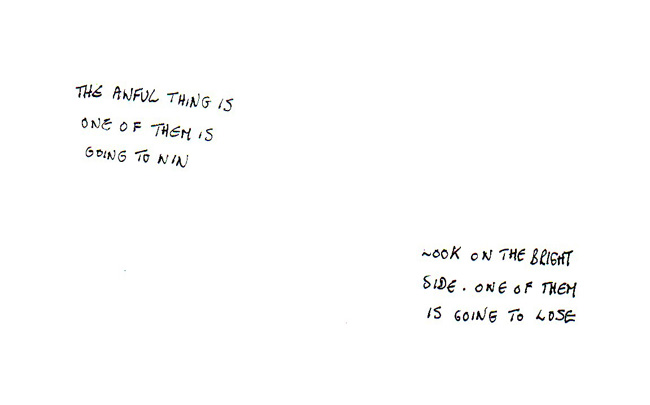 THE AWFUL THING IS
ONE OF THEM IS
GOING TO WIN
LOOK ON THE BRIGHT
SIDE. ONE OF THEM
IS GOING TO LOSE